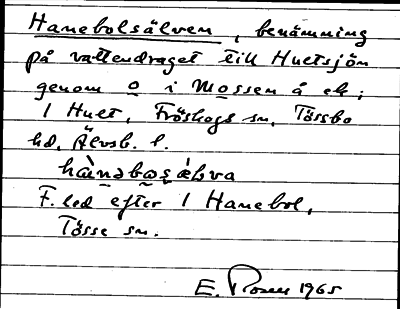 Hanebolsälven, benämning
på vattendraget till Huetsjön
genom o i Mossen å ek;
1 Huet, Fröskogs sn, Tössbo
hd, Älvsb. l.
F. led efter 1 Hanebol,
Tösse sn.
E. Rosell 1965